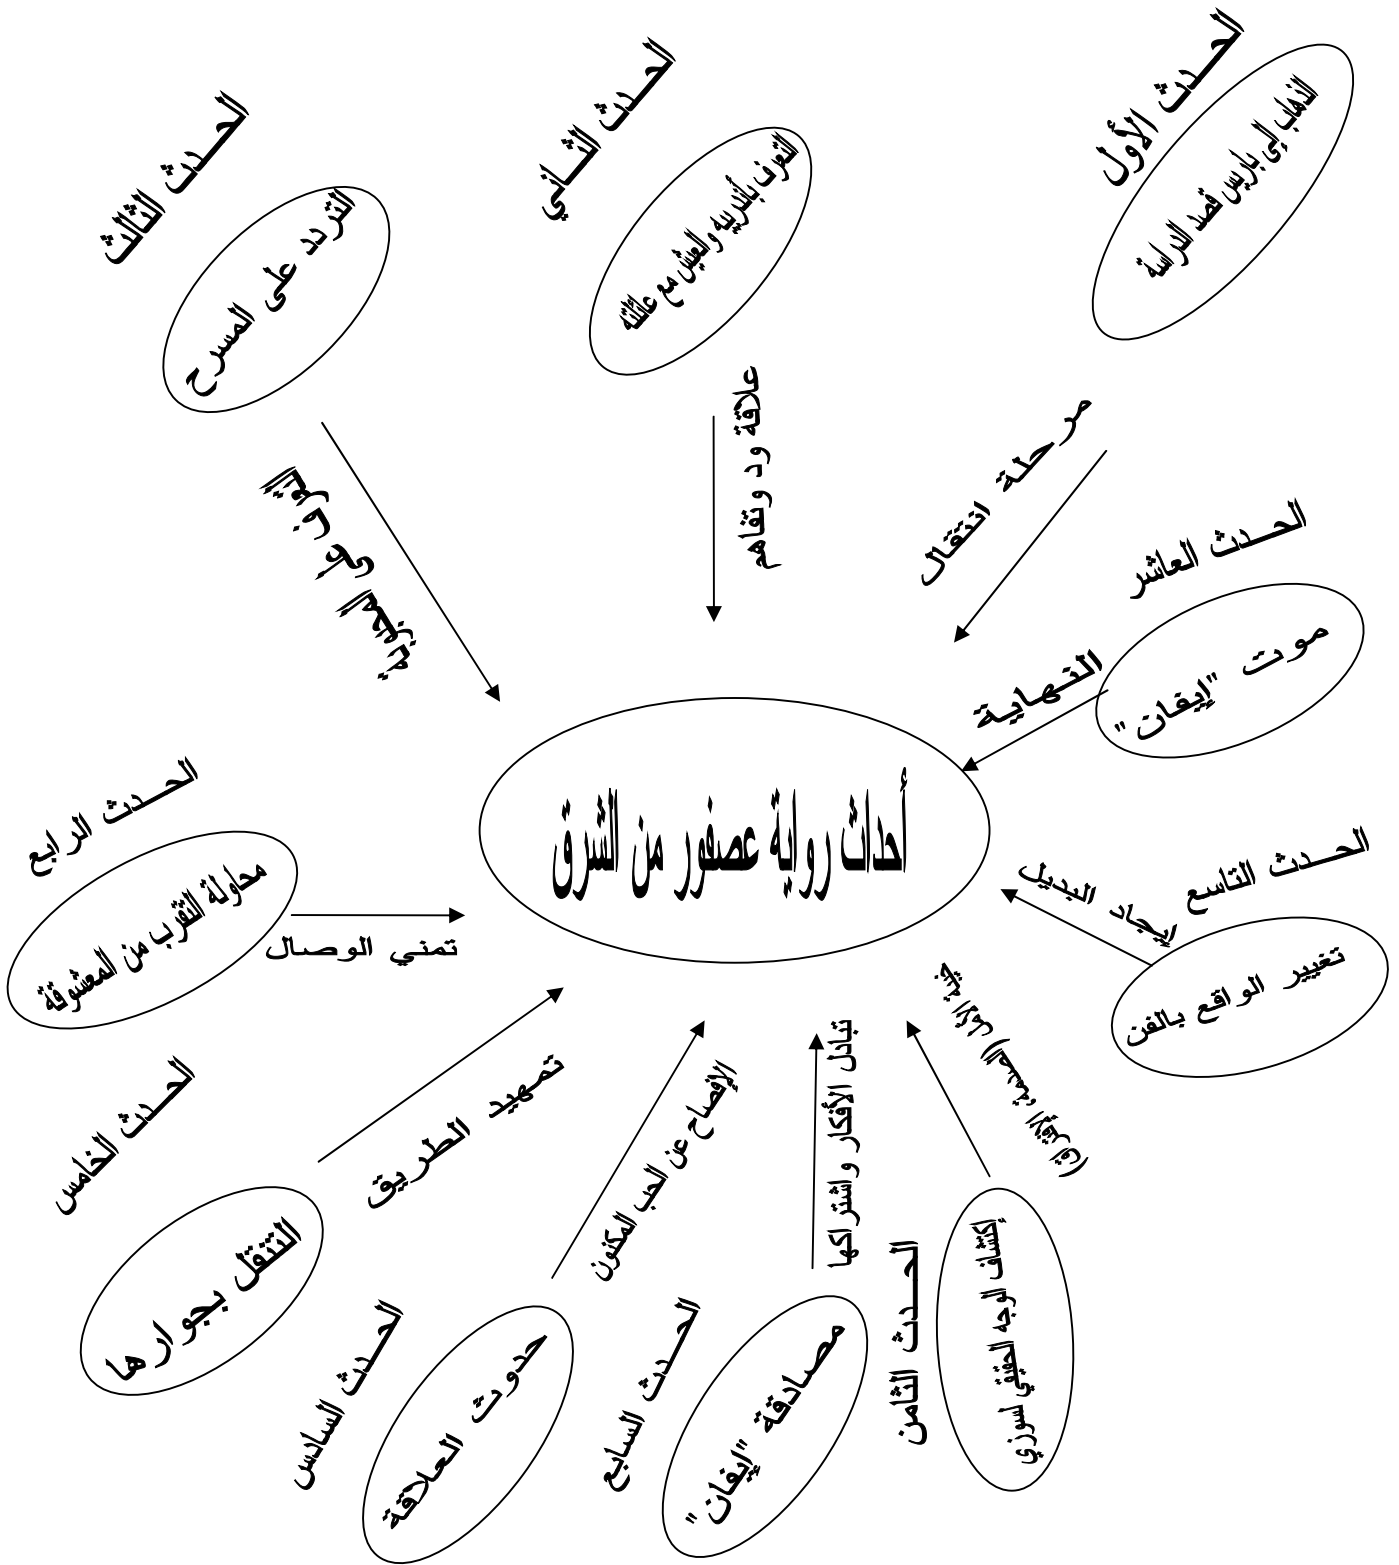 الحـــدث الأول
الذهاب إلى باريس قصد الدراسة
مرحلة انتقال
الحـــدث الثــاني
التعرف بأندريه والعيش مع عائلته
علاقة ود وتفاهم
الحـــدث الثالث
التردد على المسرح
التعرف على المحبوبة
الحـــدث الرابع
محاولة التقرب من المعشوقة
تمني الوصال
الحـــدث الخامس
التنقل بجوارها
تمهيد الطريق
الحـــدث السادس
حدوث العلاقة
الإفصاح عن الحب المكنون
الحـــدث السابع
مصادقة "إيفان"
تبادل الأفكار واشتراكها
الحـــدث الثامن
إكتشاف الوجه الحقيقي لسوزي
خيبة الأمل (الصدمة، الإفتراق)
الحـــدث التاسع
تغيير الواقع بالفن
إيجاد البديل
الحـــدث العاشر
موت "إيفان"
النهاية
أحداث رواية عصفور من الشرق